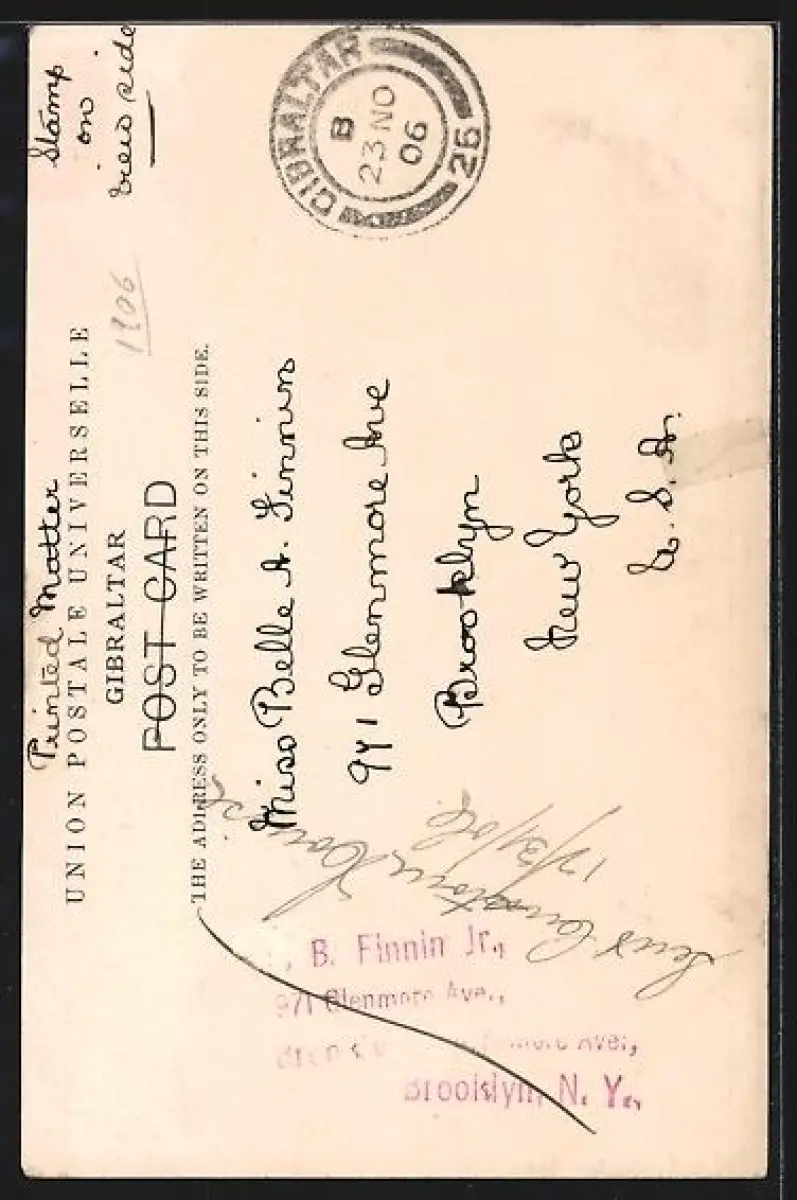 Printed Matter
Stamp
on
view side
UNION POSTALE UNIVERSELLE
GIBRALTAR
1906
POST CARD
THE ADDRESS ONLY TO BE WRITTEN ON THIS SIDE.
GIBRALTAR
B
23 NO
06
26
Miss Belle A. Finnin
971 Glenmore Ave
Brooklyn
New York
U. S. A.
Sent
12/31/06.
B. Finnin Jr.,
971 Glenmore Ave.,
Ave.,
Brooklyn, N. Y.,